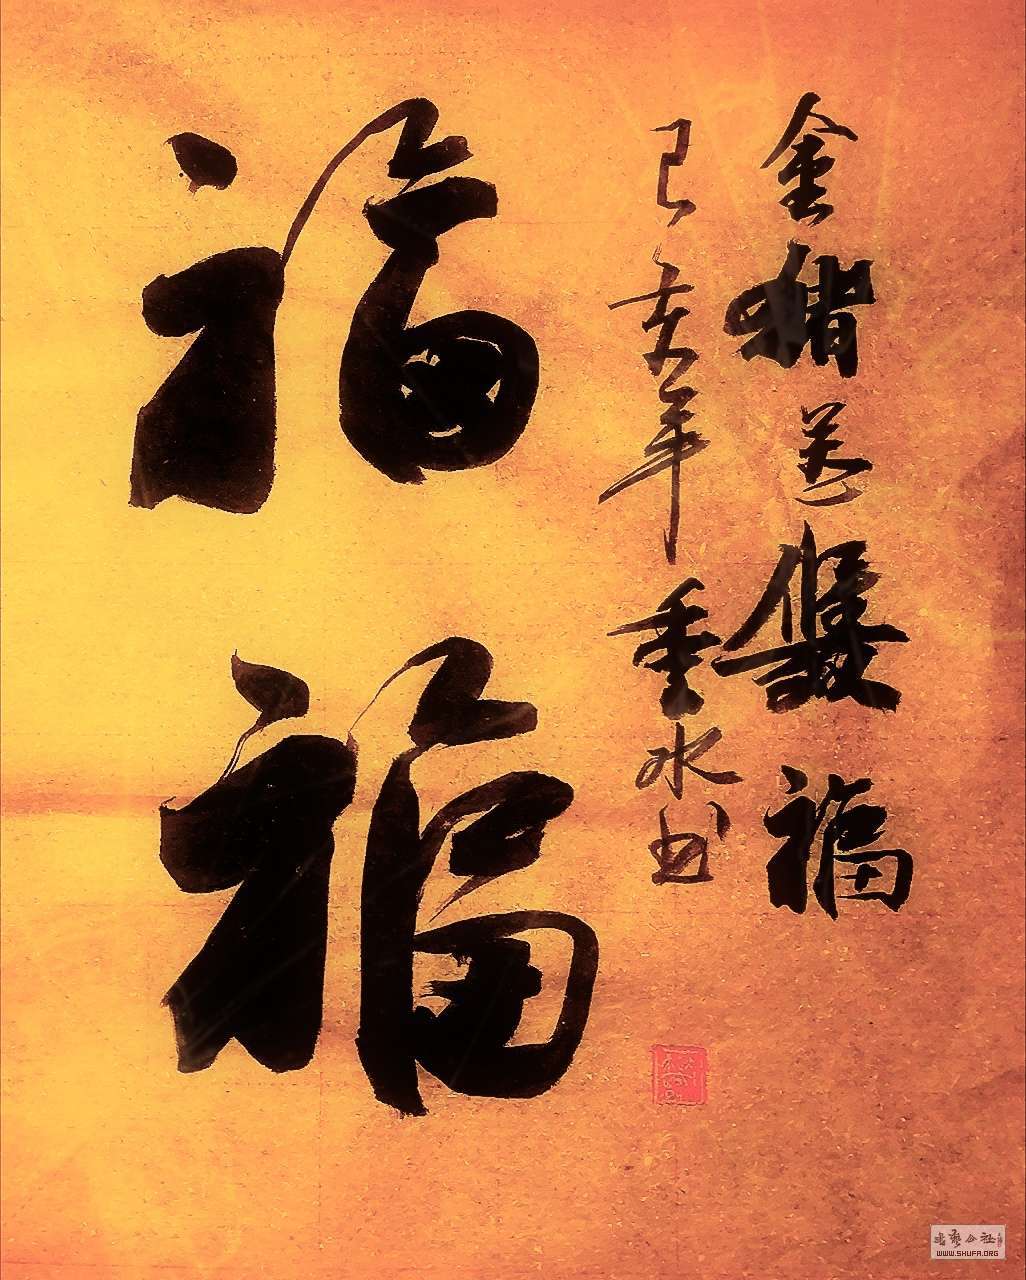 金猪送雙福
己亥年重水书
福福
書藝公社
WWW.SHUFA.ORG